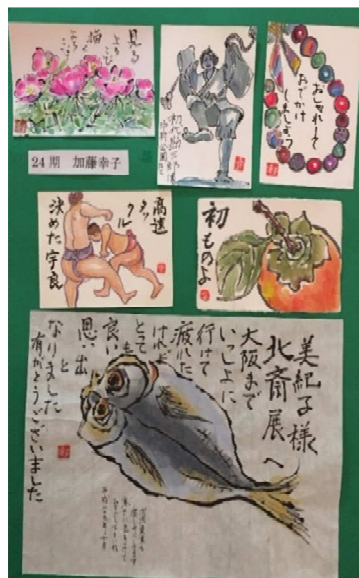 見る
よろこび
描く
よろこび
おしゃれして
おでかけ
しましょう
24期 加藤幸子
高速
タックル
決めた宇良
初ものよ
美紀子様
北斎展へ
大阪まで
いっしょに
行けて
疲れた
けれど
とても
良い
思い出
と
なりました
有がとうございました